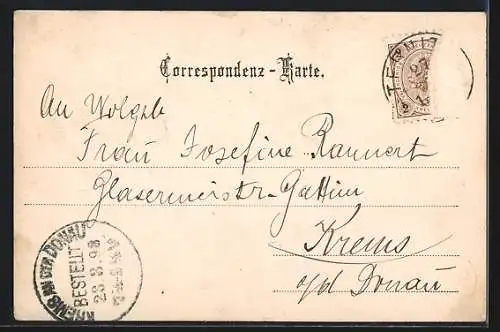 Correspondenz-Karte.
TERNITZ
An Wolgeb
Frau Josefine Rannert
Glasermeistr-Gattin
Krems
a/d Donau
KREMS AN DER DONAU
BESTELLT
23.8.98